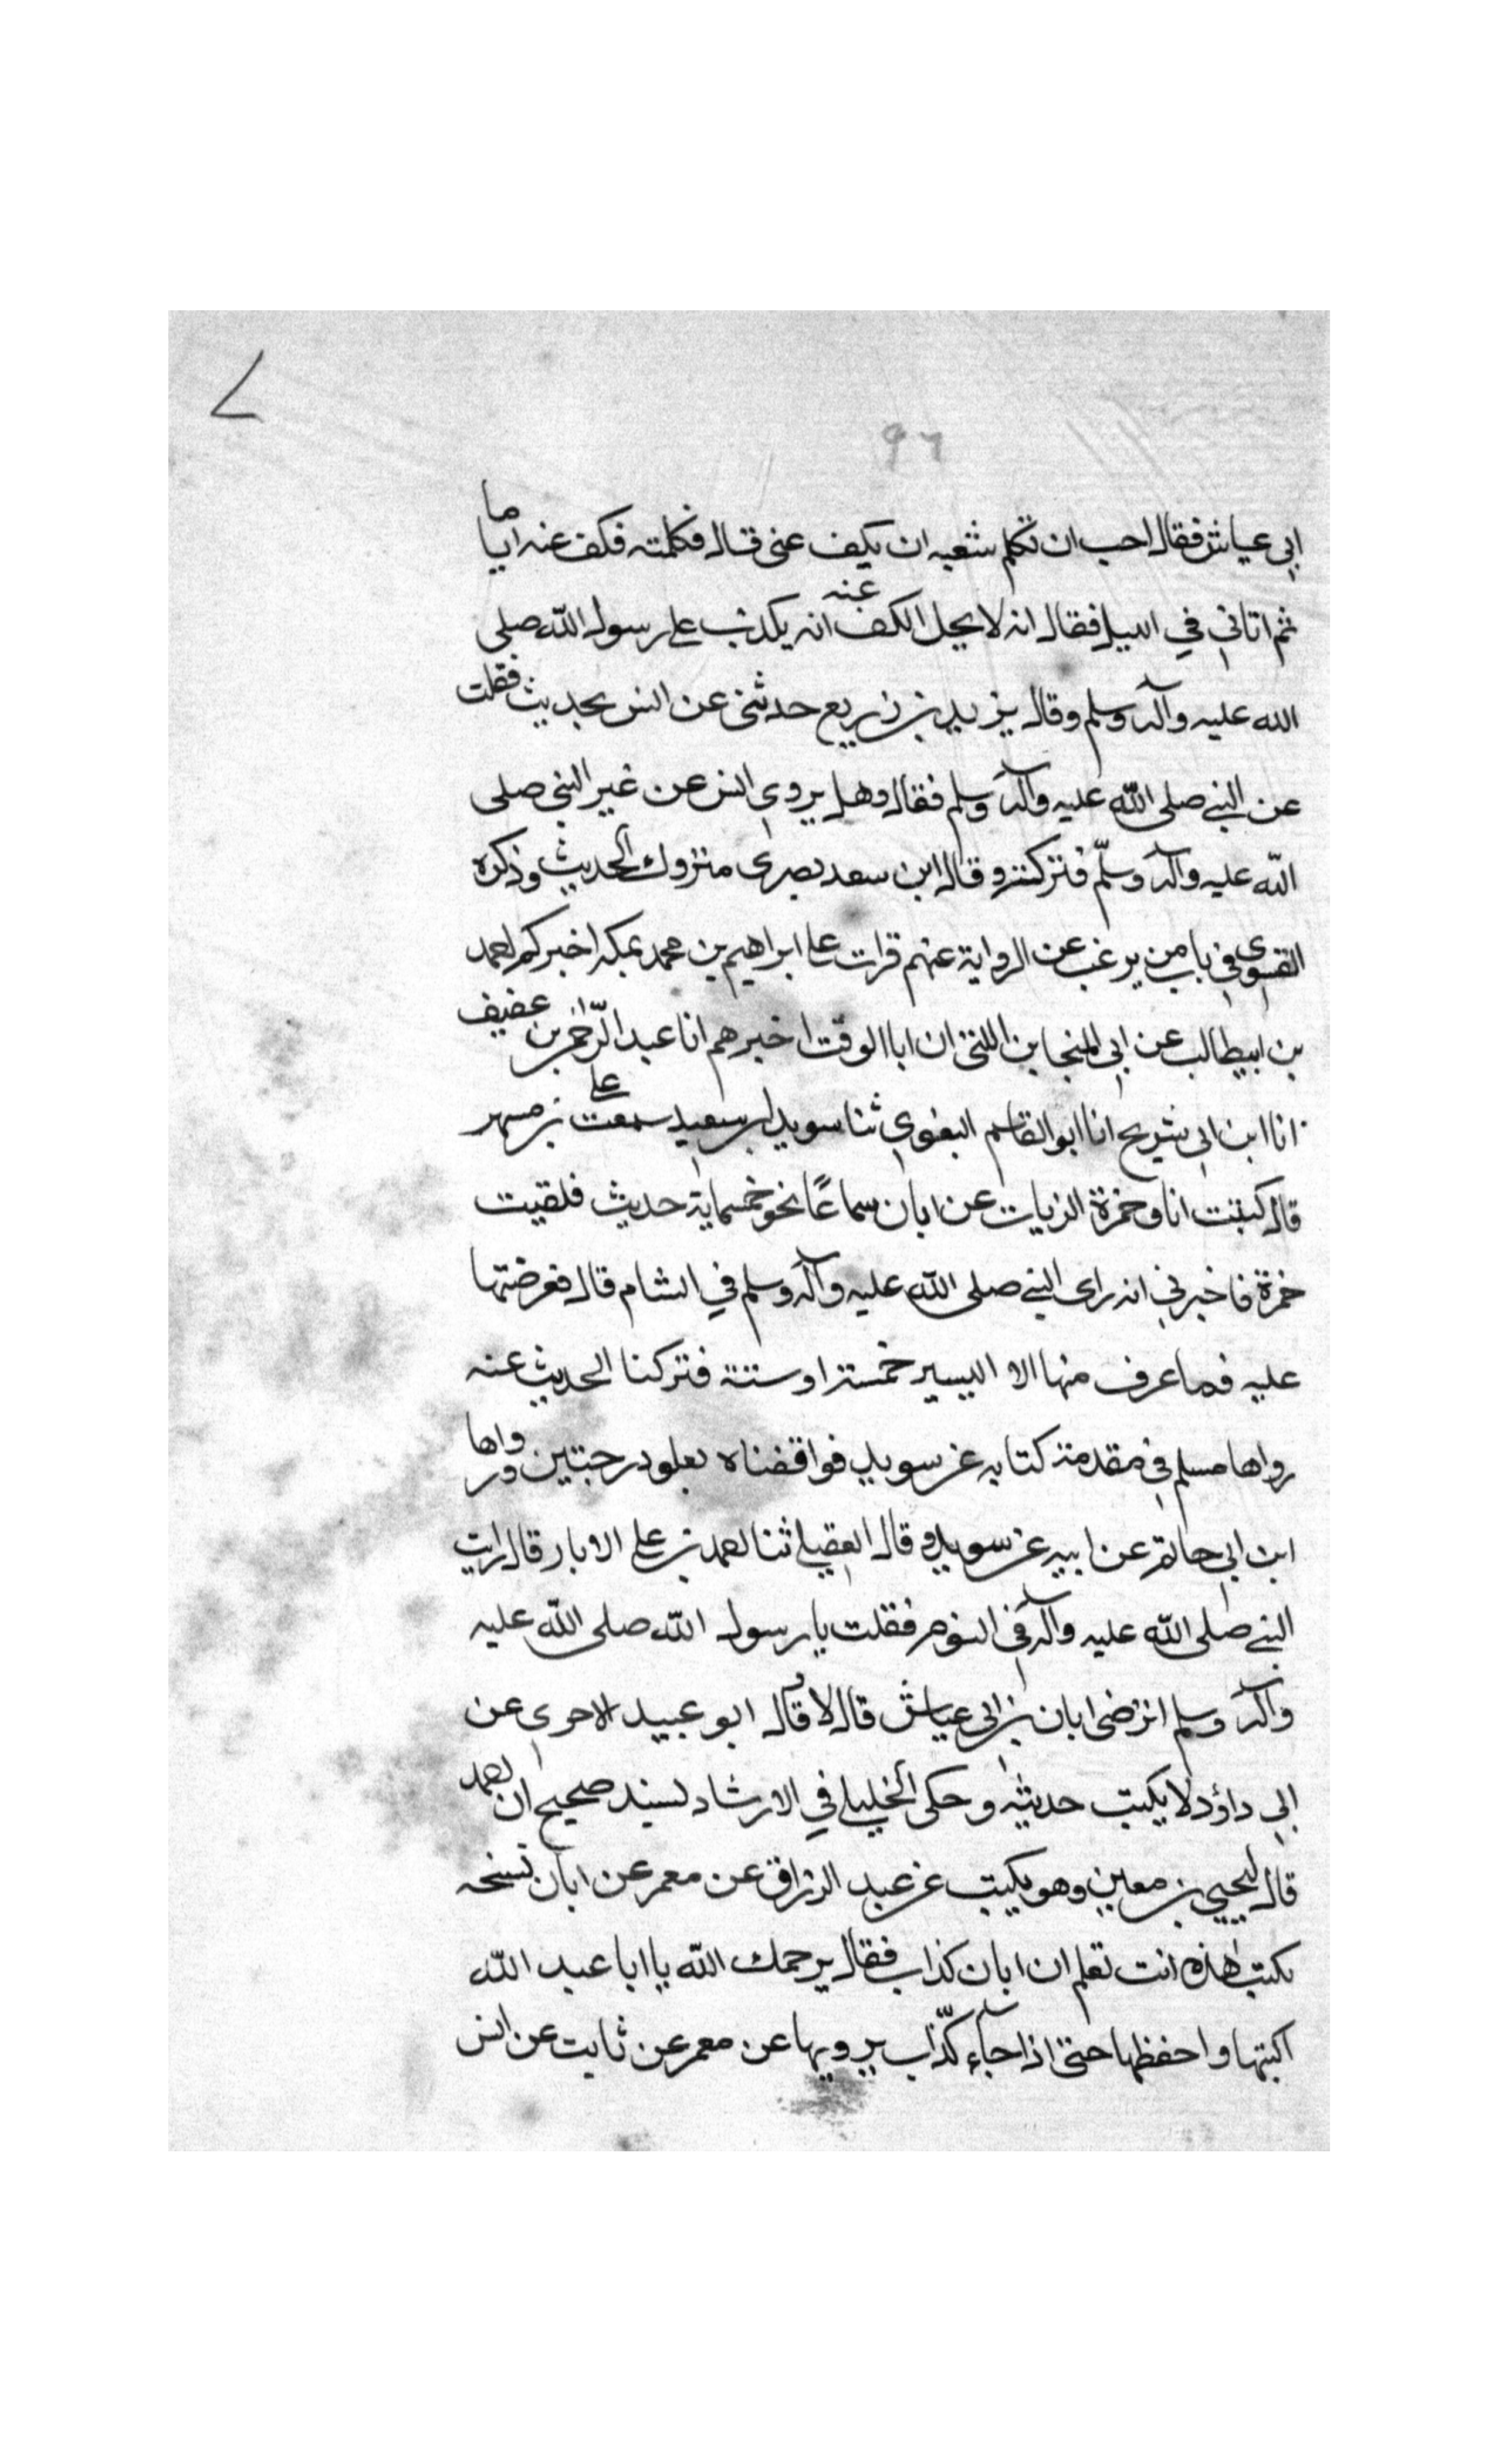 ٩٦
ابي عياش فقال احب ان تكلم شعبه ان يكف عنى قال فكلمته فكف عنه اياما
ثم اتاني في الليل فقال انه لا يحل الكف عنه انه يكذب على رسول الله صلى
الله عليه وآله وسلم وقال يزيد بن زريع حدثنى عن انس بحديث فقلت
عن النبي صلى الله عليه وآله وسلم فقال وهل يروي انس عن غير النبي صلى
الله عليه وآله وسلّم فتركته وقال ابن سعد بصرى متروك الحديث وذكره
الفسوى في باب من يرغب عن الرواية عنهم قرات على ابراهيم بن محمد بمكه اخبركم احمد
بن ابيطالب عن ابي المنجا بن اللتى ان ابا الوقت اخبرهم انا عبد الرّحمن بن عفيف
انا ابن ابي شريح انا ابو القاسم البغوي ثنا سويد بن سعيد سمعت على بن مسهر
قال كتبت انا وحمزة الزيات عن ابان سماعًا نحو خمسماية حديث فلقيت
حمزة فاخبرني انه راى النبي صلى الله عليه وآله وسلم في الشام قال فعرضتها
عليه فما عرف منها الا اليسير خمسة او ستة فتركنا الحديث عنه
رواها مسلم في مقدمة كتابه عن سويد فواقفناه بعلو درجتين ورواها
ابن ابي حاتم عن ابيه عن سويد وقال العقيلي ثنا احمد بن علي الابار قال رايت
النبي صلى الله عليه وآله في النوم فقلت يا رسول الله صلى الله عليه
وآله وسلم اترضى ابان بن ابي عياش قال لا وقال ابو عبيد الاجري عن
ابي داؤد لا يكتب حديثه وحكى الخليلي في الارشاد بسند صحيح ان احمد
قال ليحيي بن معين وهو يكتب عن عبد الرزاق عن معمر عن ابان نسخه
تكتب هذه انت تعلم ان ابان كذاب فقال يرحمك الله يا ابا عبد الله
اكتبها واحفظها حتى اذا جآء كذّاب يرويها عن معمر عن ثابت عن انس